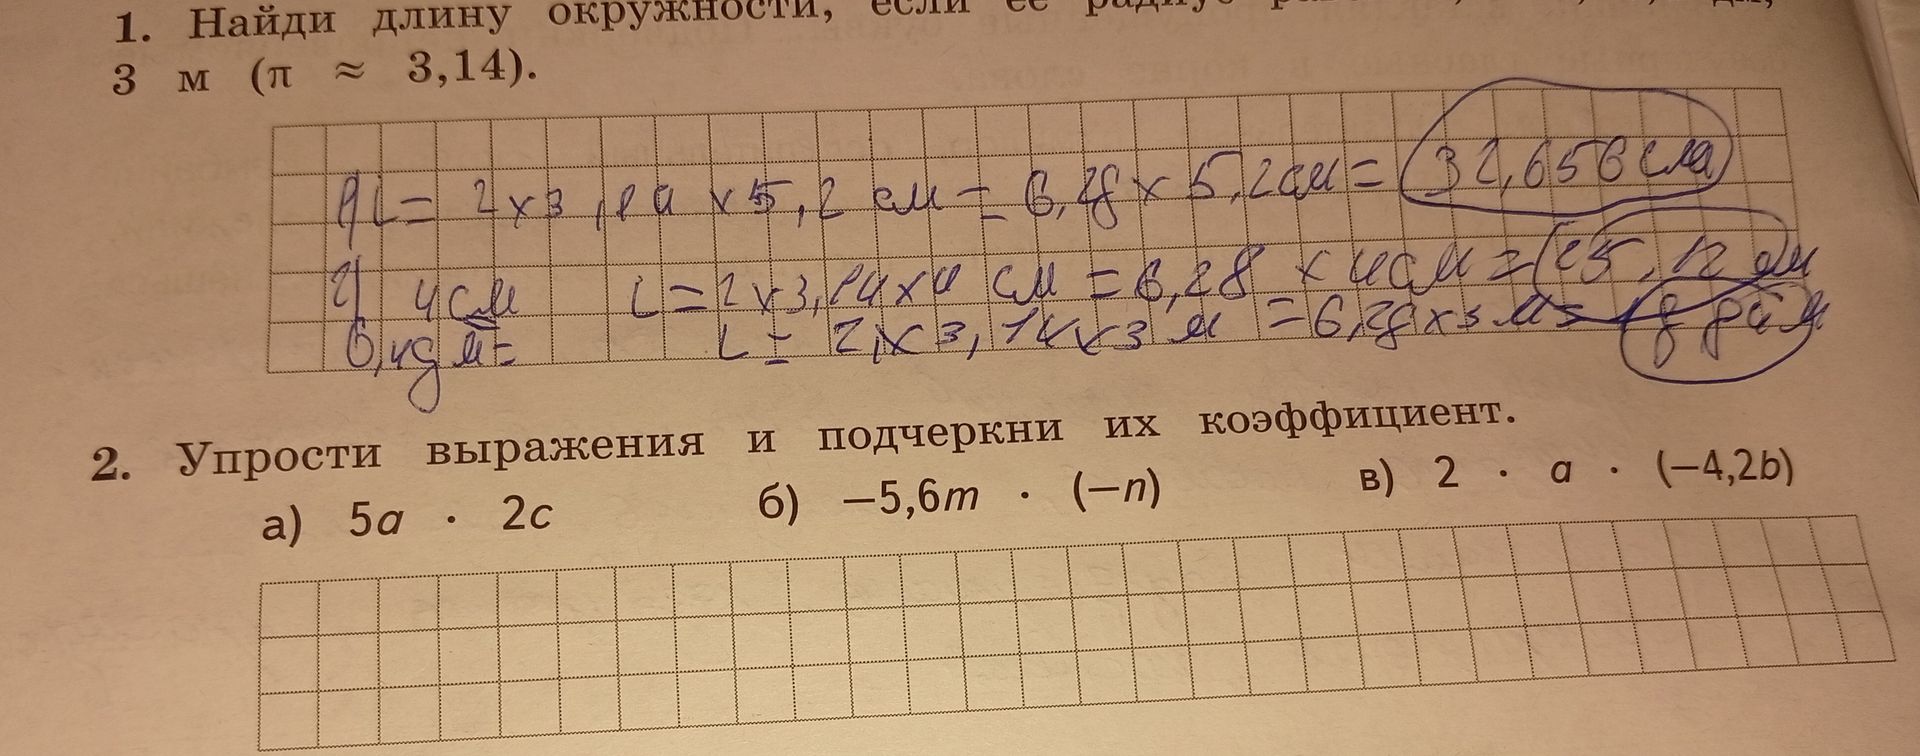 1. Найди длину окружности, если её радиус
3 м (π ≈ 3,14).
L = 2 x 3,14 x 5,2 см = 6,28 x 5,2 см = 32,656 см
2) 4 см L = 2 x 3,14 x 4 см = 6,28 x 4 см = 25,12 см
0,4 дм = L = 2 x 3,14 x 3 м = 6,28 x 3 м =
2. Упрости выражения и подчеркни их коэффициент.
а) 5a · 2c б) –5,6m · (–n) в) 2 · a · (–4,2b)